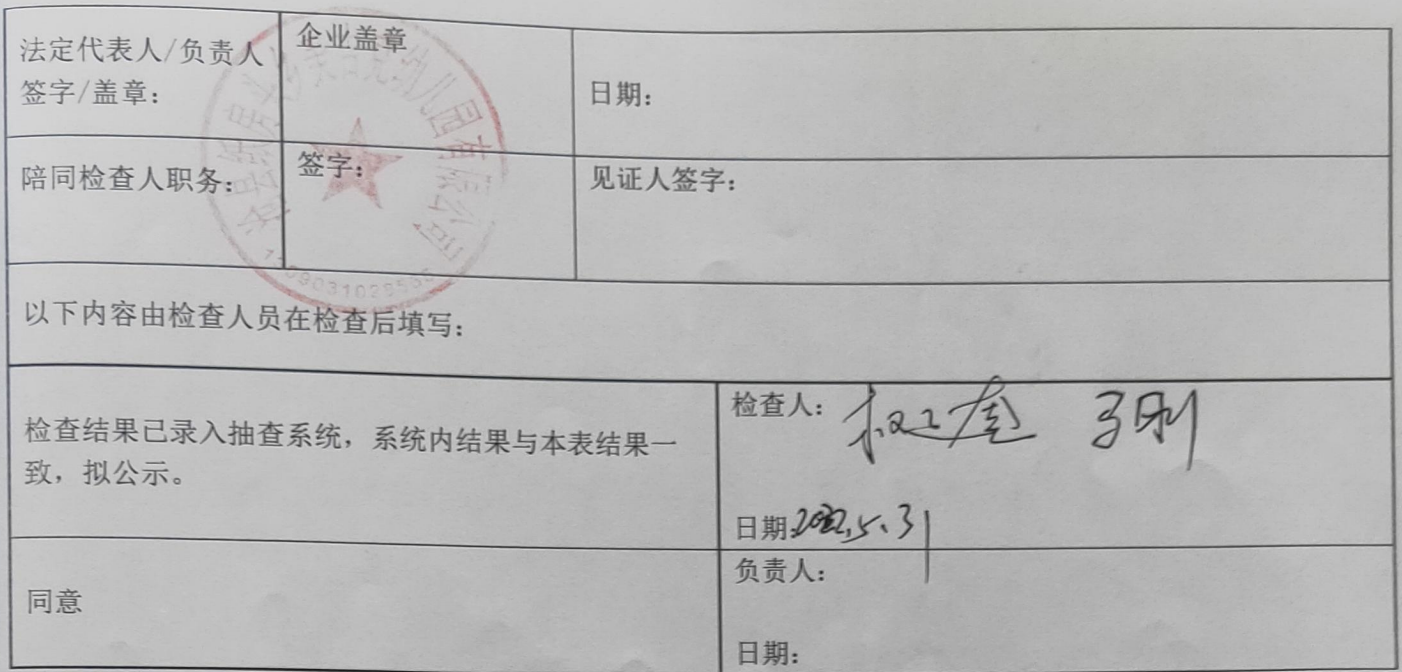 法定代表人/负责人
签字/盖章：
企业盖章
日期：
陪同检查人职务：
签字：
见证人签字：
幼儿园有限公司
以下内容由检查人员在检查后填写：
检查结果已录入抽查系统，系统内结果与本表结果一
致，拟公示。
检查人：
日期：2022.5.31
同意
负责人：
日期：